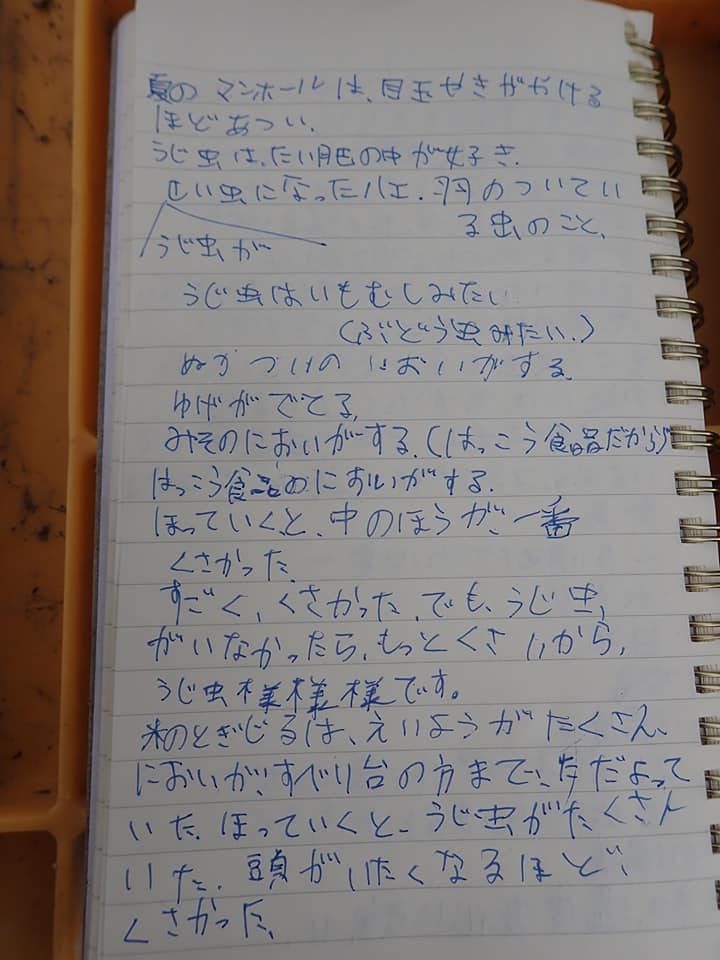 夏のマンホールは、目玉やきがやける
ほどあつい.
うじ虫は、たい肥の中が好き.
せい虫になったハエ.羽のついてい
る虫のこと、
うじ虫が
うじ虫はいもむしみたい
(ぶどう虫みたい.)
ぬかづけのにおいがする.
ゆげがでてる、
みそのにおいがする.(はっこう食品だから)
はっこう食品のにおいがする.
ほっていくと、中のほうが、一番
くさかった.
すごく、くさかった.でも、うじ虫、
がいなかったら、もっとくさいから、
うじ虫様様様です。
米のとぎじるは、えいようがたくさん、
においが、すべり台の方まで、ただよって
いた.ほっていくと、うじ虫がたくさん
いた.頭がいたくなるほど、
くさかった、